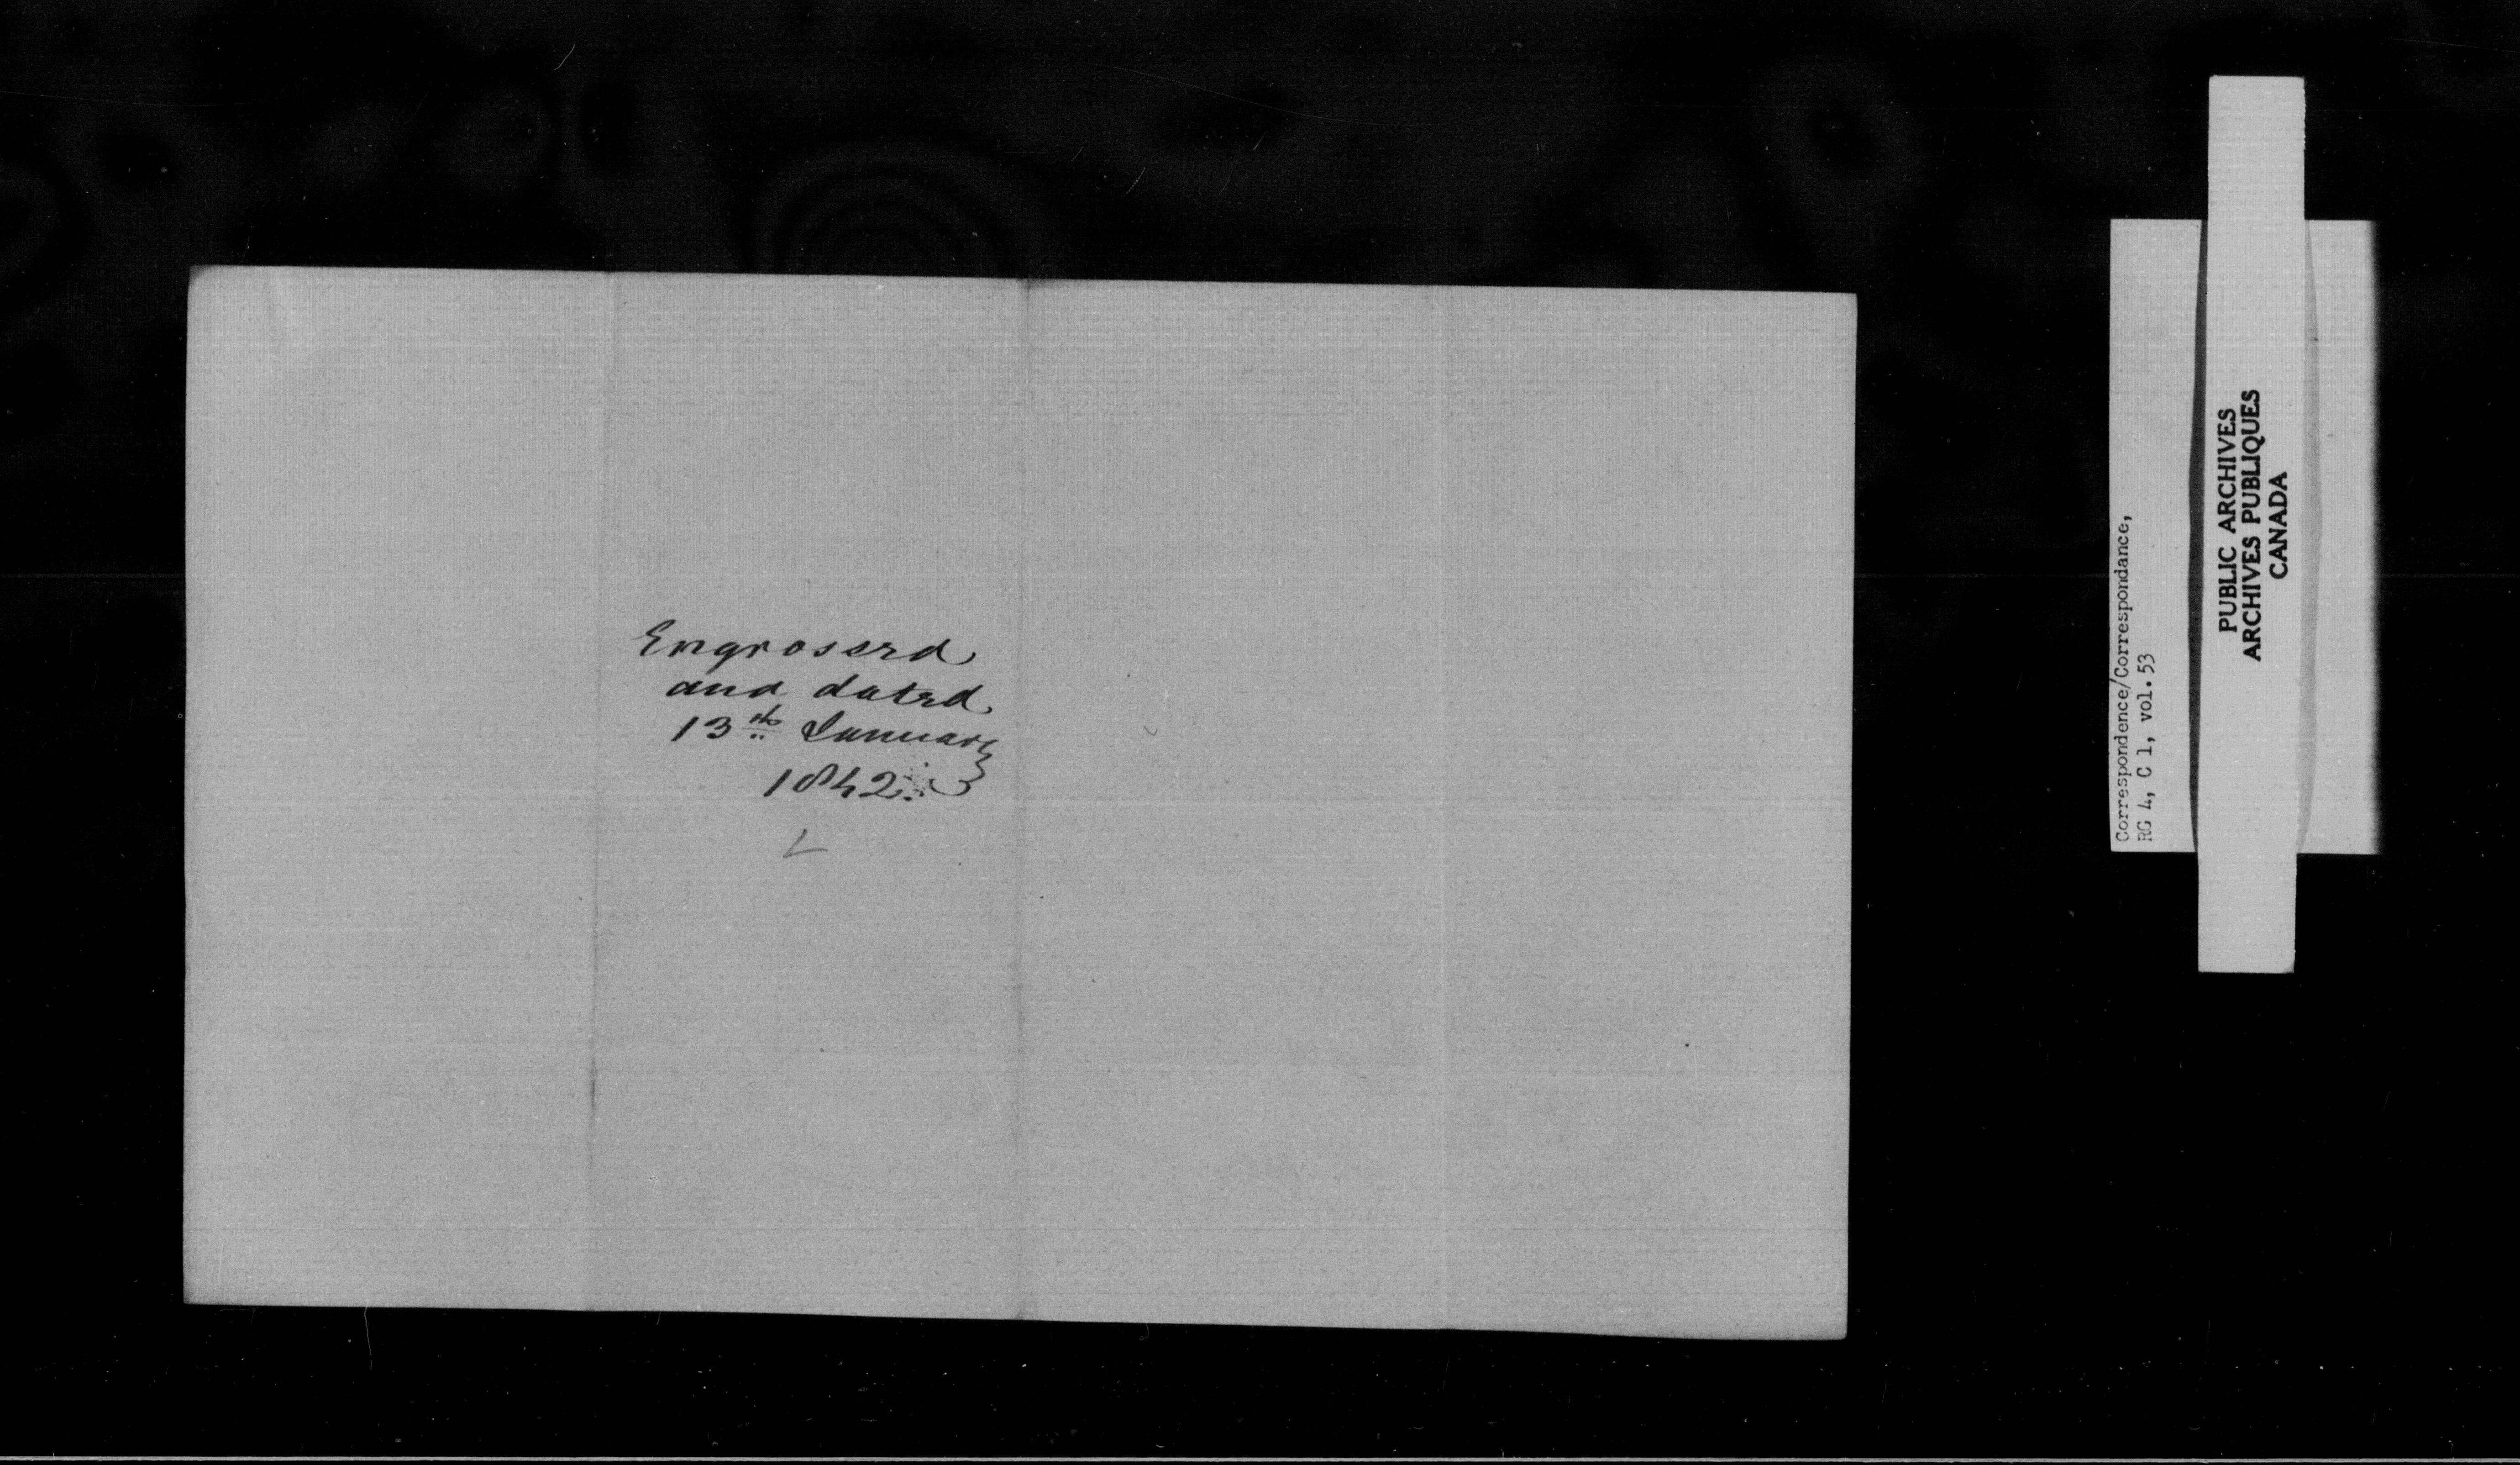 Engrossed
and dated
13th January
1842
Correspondence/Correspondance,
RG 4, C 1, vol. 53
PUBLIC ARCHIVES
ARCHIVES PUBLIQUES
CANADA